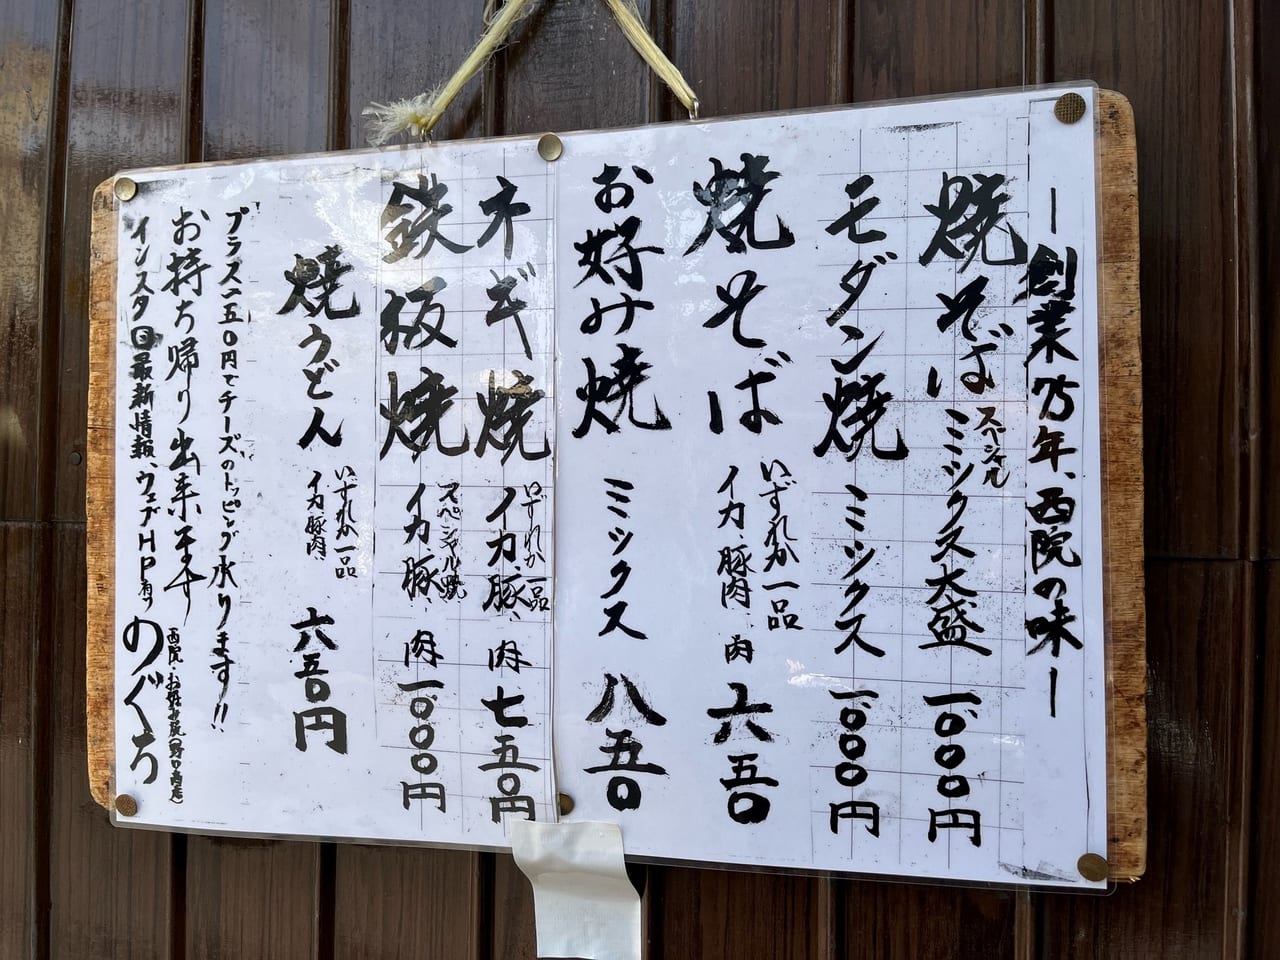 ー創業75年、西院の味ー
焼そばミックス大盛 一、〇〇〇円
スペシャル
モダン焼 ミックス 一、〇〇〇円
焼そば いずれか一品
イカ、豚肉、肉 六五〇
お好み焼 ミックス 八五〇
ネギ焼 いずれか一品
イカ、豚、肉 七五〇円
鉄板焼 スペシャル焼
イカ、豚、肉 一、〇〇〇円
焼うどん いずれか一品
イカ、豚肉、 六五〇円
プラス一五〇円でチーズのトッピング承ります!!
お持ち帰り出来ます
インスタ 最新情報、ウェブHP有り
西院・お好み焼(野口商店)
のぐち